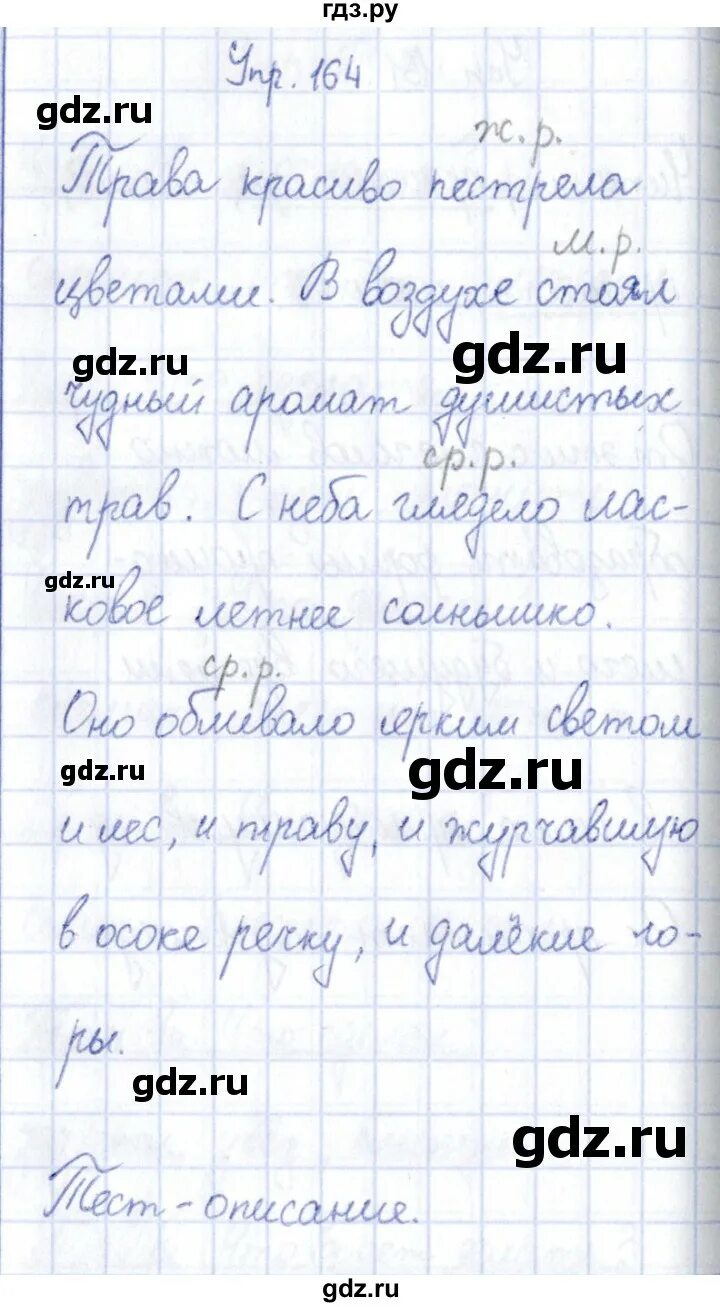 гдз.ру
Упр. 164
gdz.ru
ж.р.
Трава красиво пестрела
м.р.
цветами. В воздухе стоял
gdz.ru
gdz.ru
чудный аромат душистых
ср.р.
трав. С неба глядело лас-
gdz.ru
ковое летнее солнышко.
ср.р.
Оно обливало ярким светом
gdz.ru
gdz.ru
и лес, и траву, и журчавшую
в осоке речку, и далёкие го-
ры.
gdz.ru
gdz.ru
Тест-описание.
gdz.ru